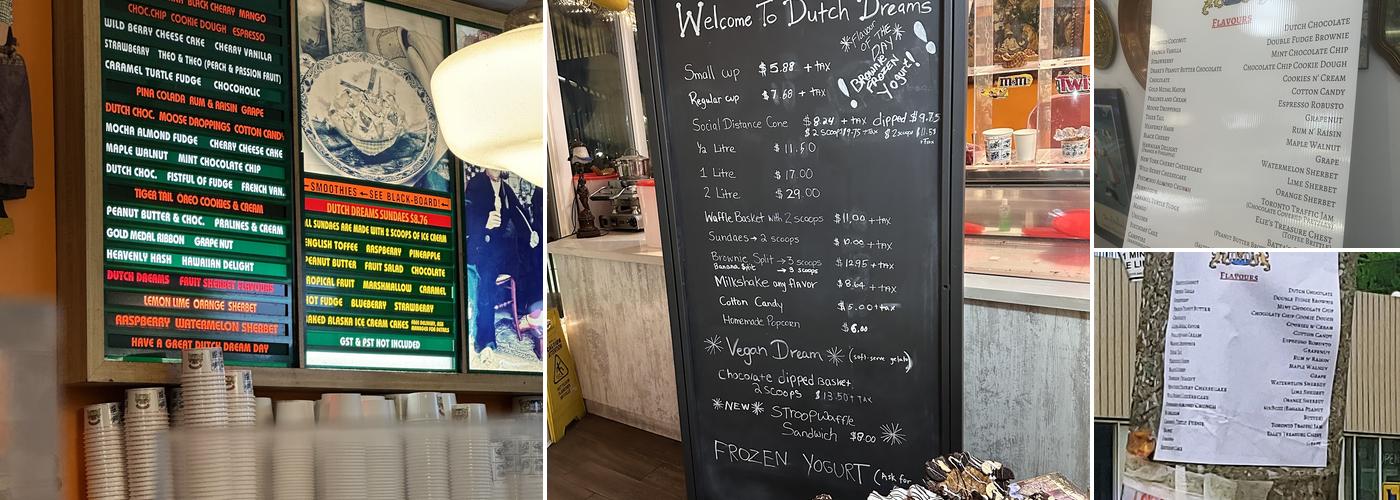 BLACK CHERRY MANGO
CHOC.CHIP COOKIE DOUGH ESPRESSO
WILD BERRY CHEESE CAKE CHERRY VANILLA
STRAWBERRY THEO & THEO (PEACH & PASSION FRUIT)
CARAMEL TURTLE FUDGE CHOCOHOLIC
PINA COLADA RUM & RAISIN GRAPE
DUTCH CHOC. MOOSE DROPPINGS COTTON CANDY
MOCHA ALMOND FUDGE CHERRY CHEESE CAKE
MAPLE WALNUT MINT CHOCOLATE CHIP
DUTCH CHOC. FISTFUL OF FUDGE FRENCH VAN.
TIGER TAIL OREO COOKIES & CREAM
PEANUT BUTTER & CHOC. PRALINES & CREAM
GOLD MEDAL RIBBON GRAPE NUT
HEAVENLY HASH HAWAIIAN DELIGHT
DUTCH DREAMS FRUIT SHERBET FLAVOURS
LEMON LIME ORANGE SHERBET
RASPBERRY WATERMELON SHERBET
HAVE A GREAT DUTCH DREAM DAY
SMOOTHIES SEE BLACK-BOARD!
DUTCH DREAMS SUNDAES $8.76
ALL SUNDAES ARE MADE WITH 2 SCOOPS OF ICE CREAM
ENGLISH TOFFEE RASPBERRY PINEAPPLE
PEANUT BUTTER FRUIT SALAD CHOCOLATE
TROPICAL FRUIT MARSHMALLOW CARAMEL
HOT FUDGE BLUEBERRY STRAWBERRY
BAKED ALASKA ICE CREAM CAKES
GST & PST NOT INCLUDED
Welcome To Dutch Dreams
*Flavour OF THE DAY*
BROWNIE FROZEN Yogurt!
Small cup $5.88 + tax
Regular cup $7.68 + tax
Social Distance Cone $8.24 + tax dipped $9.75
1/2 Litre $11.50
1 Litre $17.00
2 Litre $29.00
Waffle Basket with 2 scoops $11.00 + tax
Sundaes → 2 scoops $10.00 + tax
Brownie Split → 3 scoops $12.95 + tax
Banana Split → 3 scoops
Milkshake any flavor $8.64 + tax
Cotton Candy $5.00 + tax
Homemade Popcorn $6.00
Vegan Dream (soft-serve gelato)
Chocolate dipped Basket
2 scoops $13.50 + TAX
*NEW* STROOPWAFFLE
Sandwich $8.00
FROZEN YOGURT (Ask for
m&m's
Twix
FLAVOURS
FRENCH VANILLA
STRAWBERRY
CHOCOLATE
PRALINES AND CREAM
MOOSE DROPPINGS
TIGER TAIL
HEAVENLY HASH
BLACK CHERRY
HAWAIIAN DELIGHT
NEW YORK CHERRY CHEESECAKE
WILD BERRY CHEESECAKE
CARAMEL TURTLE FUDGE
MANGO
UNICORN
BIRTHDAY CAKE
DUTCH CHOCOLATE
DOUBLE FUDGE BROWNIE
MINT CHOCOLATE CHIP
CHOCOLATE CHIP COOKIE DOUGH
COOKIES N' CREAM
COTTON CANDY
ESPRESSO ROBUSTO
GRAPENUT
RUM N' RAISIN
MAPLE WALNUT
GRAPE
WATERMELON SHERBET
LIME SHERBET
ORANGE SHERBET
TORONTO TRAFFIC JAM
(CHOCOLATE COVERED PRETZELS)
ELIE'S TREASURE CHEST
(TOFFEE BRITTLE)
FLAVOURS
DUTCH CHOCOLATE
DOUBLE FUDGE BROWNIE
MINT CHOCOLATE CHIP
CHOCOLATE CHIP COOKIE DOUGH
COOKIES N' CREAM
COTTON CANDY
ESPRESSO ROBUSTO
GRAPENUT
RUM N' RAISIN
MAPLE WALNUT
GRAPE
WATERMELON SHERBET
LIME SHERBET
ORANGE SHERBET
TORONTO TRAFFIC JAM
ELIE'S TREASURE CHEST